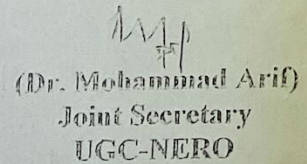 (Dr. Mohammad Arif)
Joint Secretary
UGC-NERO